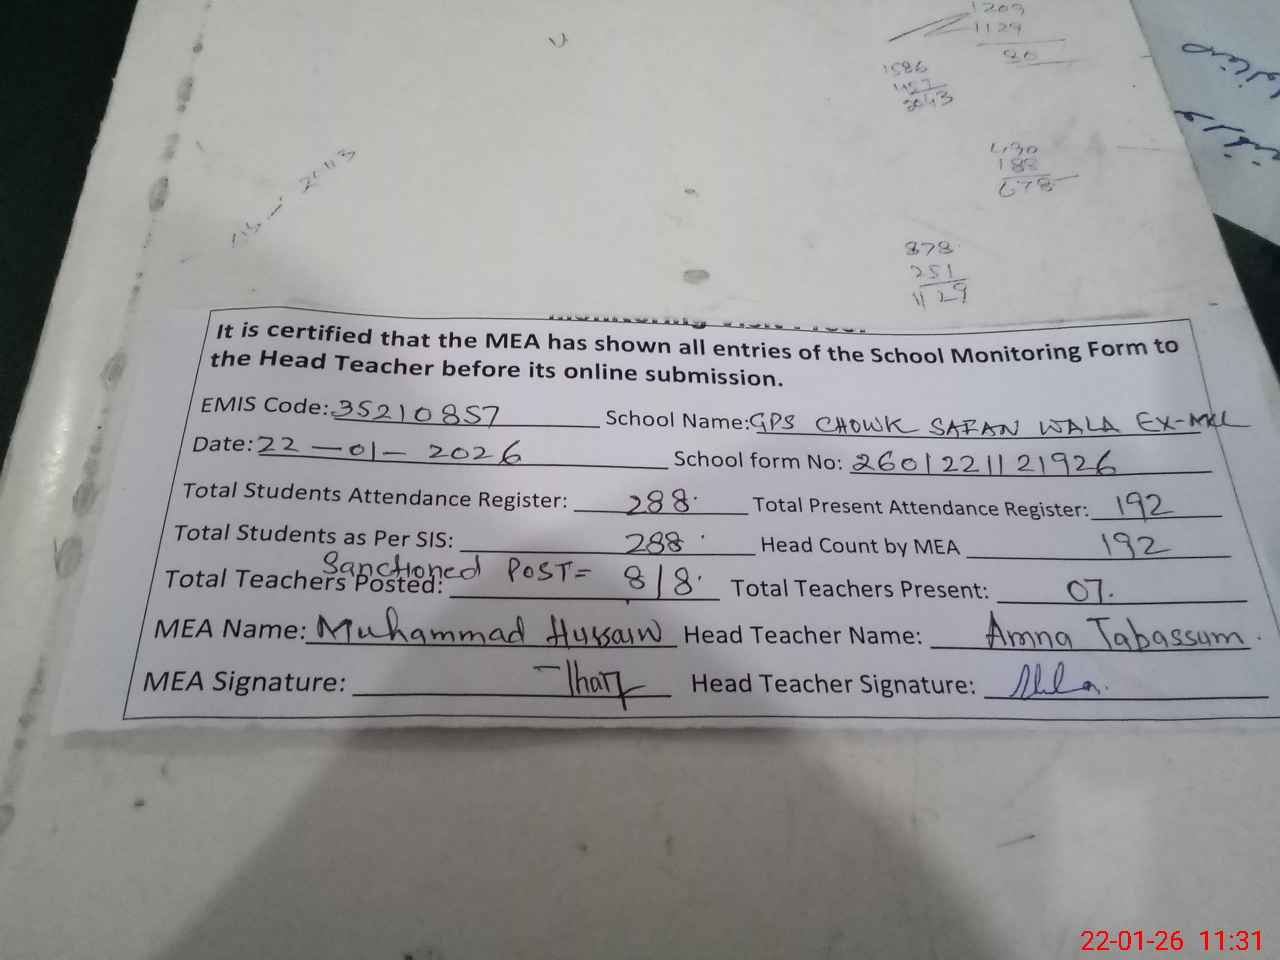 1209
1129
80
1586
457
2043
490
188
678
2043
878
251
1129
It is certified that the MEA has shown all entries of the School Monitoring Form to
the Head Teacher before its online submission.
EMIS Code: 35210857 School Name: GPS CHOWK SAFAN WALA EX-MCL
Date: 22-01-2026 School form No: 2601221121926
Total Students Attendance Register: 288 Total Present Attendance Register: 192
Total Students as Per SIS: 288 Head Count by MEA 192
Sanctioned POST=
Total Teachers Posted: 8/8 Total Teachers Present: 07.
MEA Name: Muhammad Hussain Head Teacher Name: Amna Tabassum
MEA Signature: Head Teacher Signature:
22-01-26 11:31